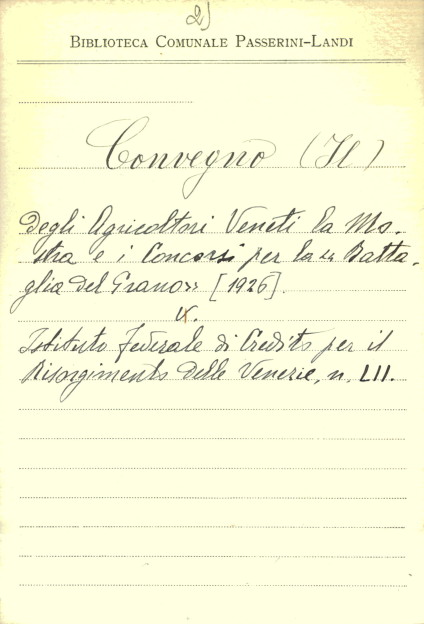 2)
BIBLIOTECA COMUNALE PASSERINI-LANDI
Convegno (Il)
degli Agricoltori Veneti la Mo-
stra e i Concorsi per la "Batta-
glia del Grano" [1926].
V.
Istituto Federale di Credito per il
Risorgimento delle Venezie, n. LII.